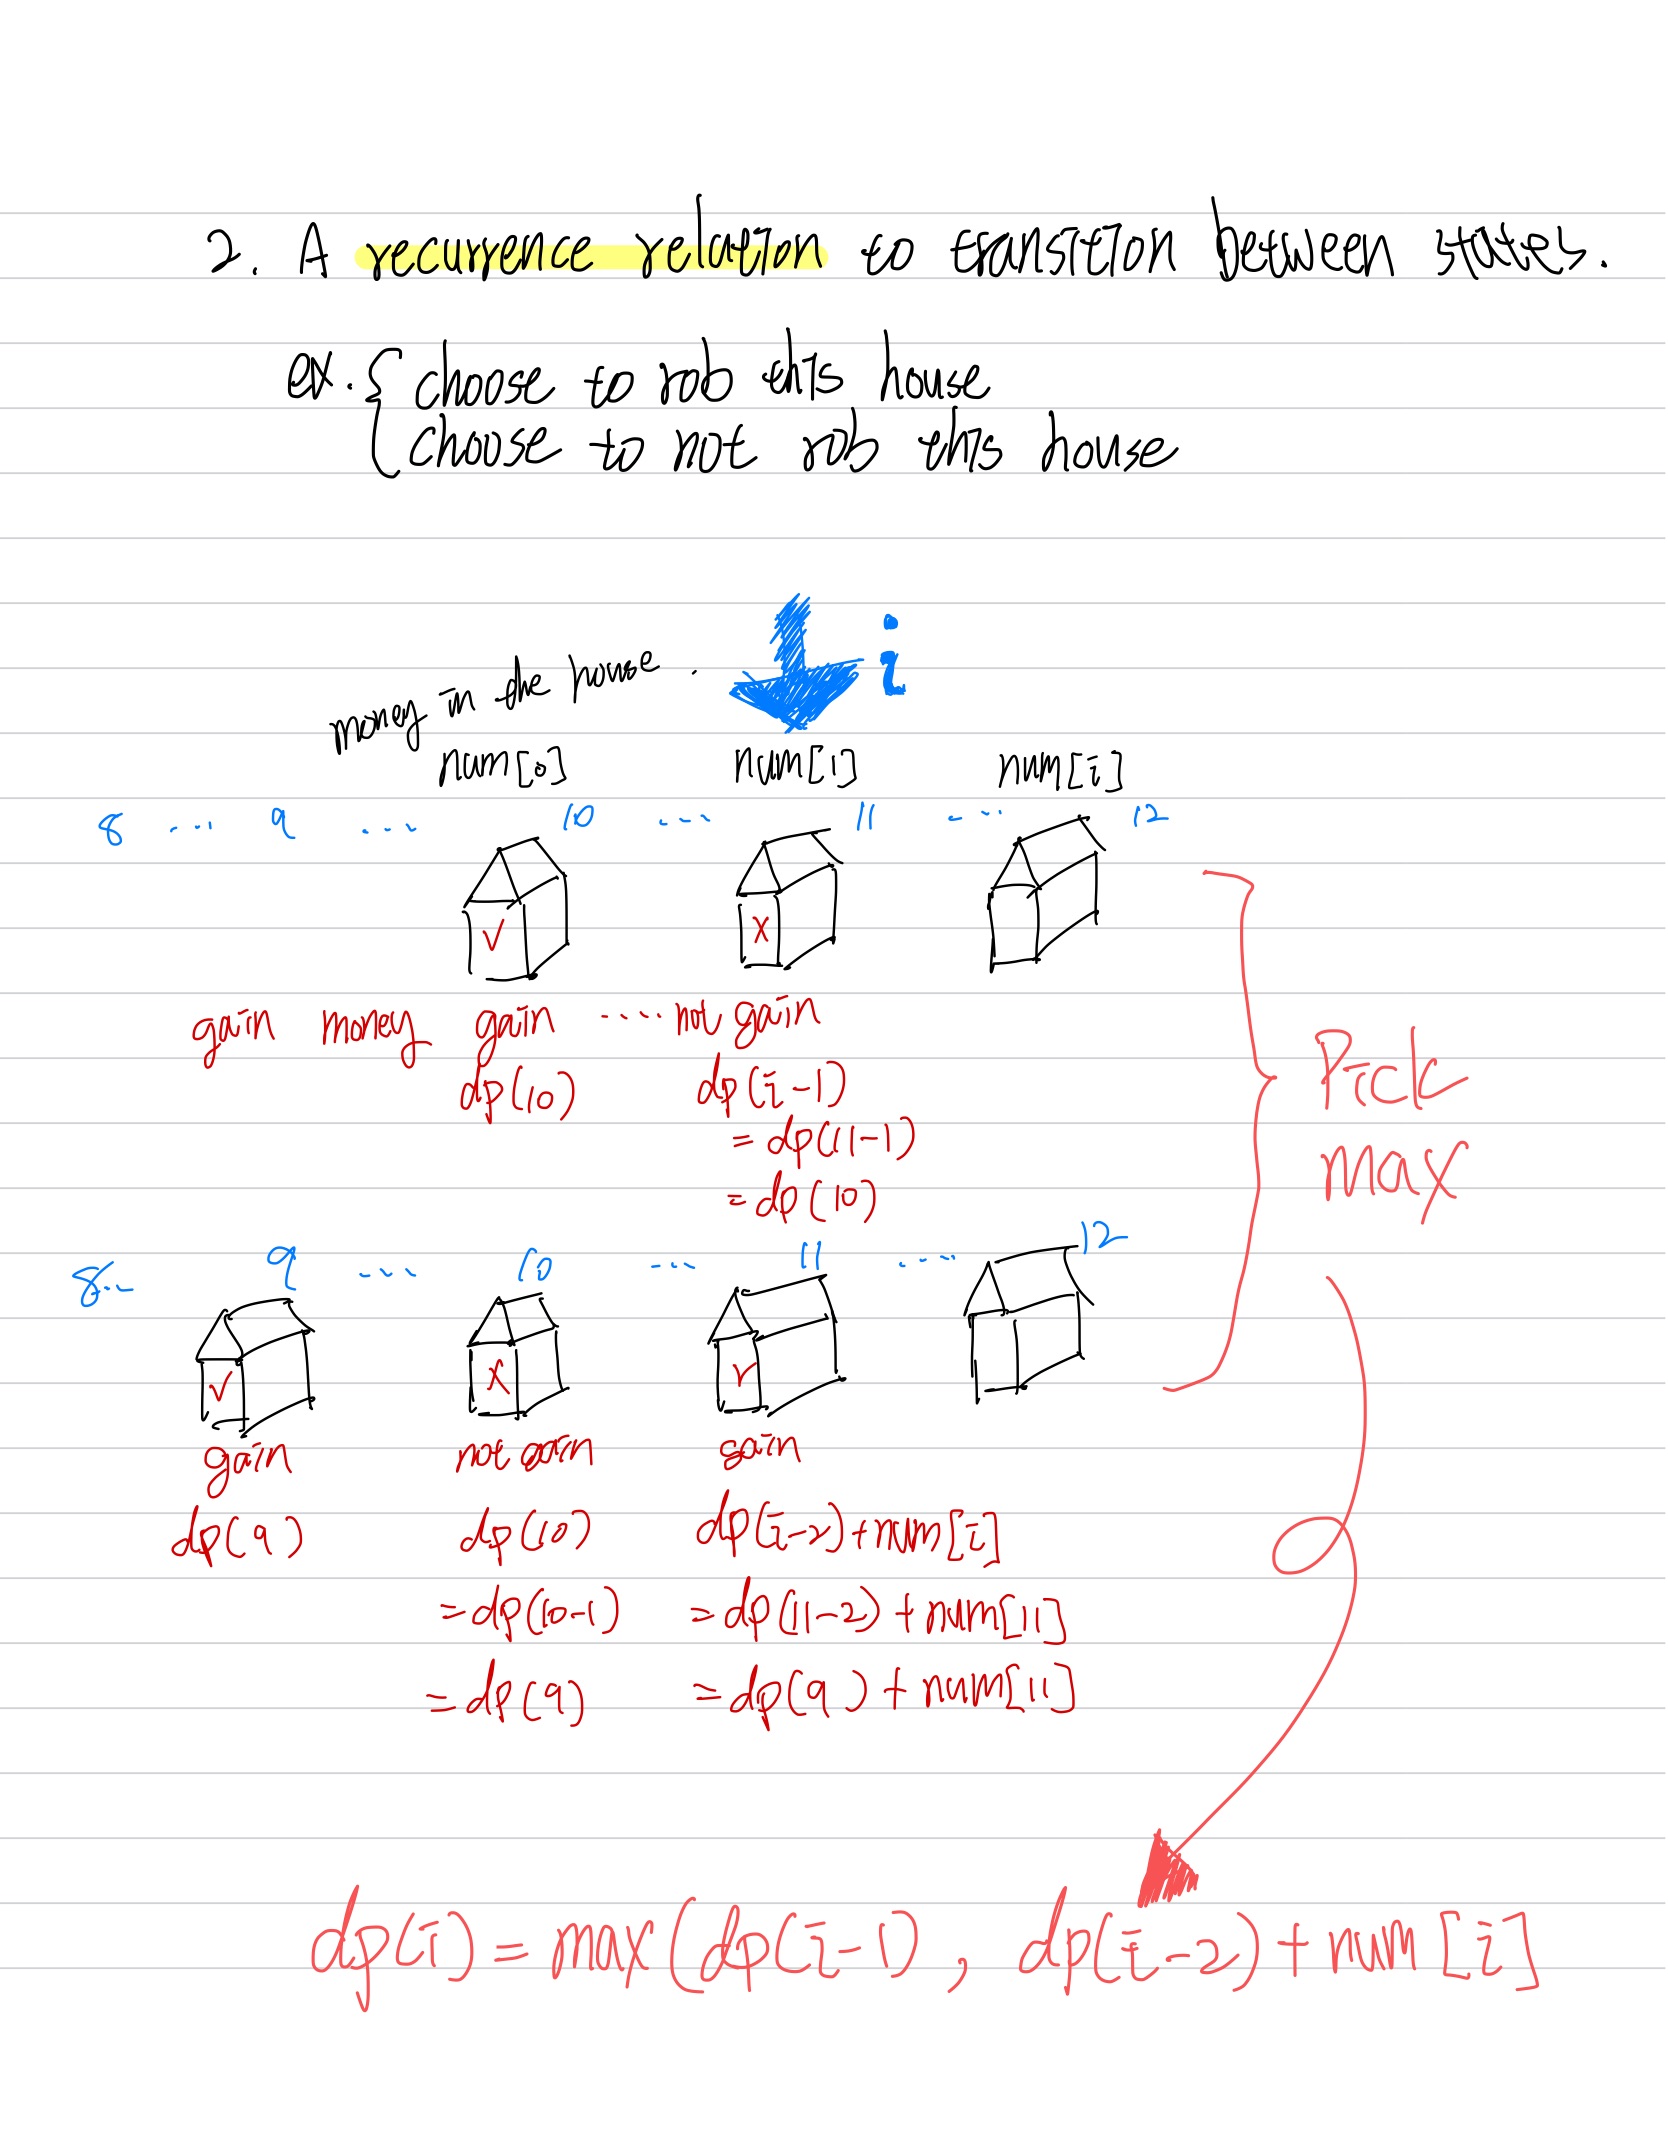 2. A recurrence relation to transition between states.
ex. { choose to rob this house
choose to not rob this house
i
money in the house.
num[0] num[1] num[i]
8 ... 9 ... 10 ... 11 ... 12
✓ X
gain money gain ..... not gain
dp(10) dp(i-1)
= dp(11-1)
= dp(10)
Pick
max
8.. 9 ... 10 ... 11 .... 12
✓ X ✓
gain not gain gain
dp(9) dp(10) dp(i-2)+num[i]
=dp(10-1) =dp(11-2)+num[11]
=dp(9) =dp(9)+num[11]
dp(i) = max(dp(i-1), dp(i-2)+num[i]